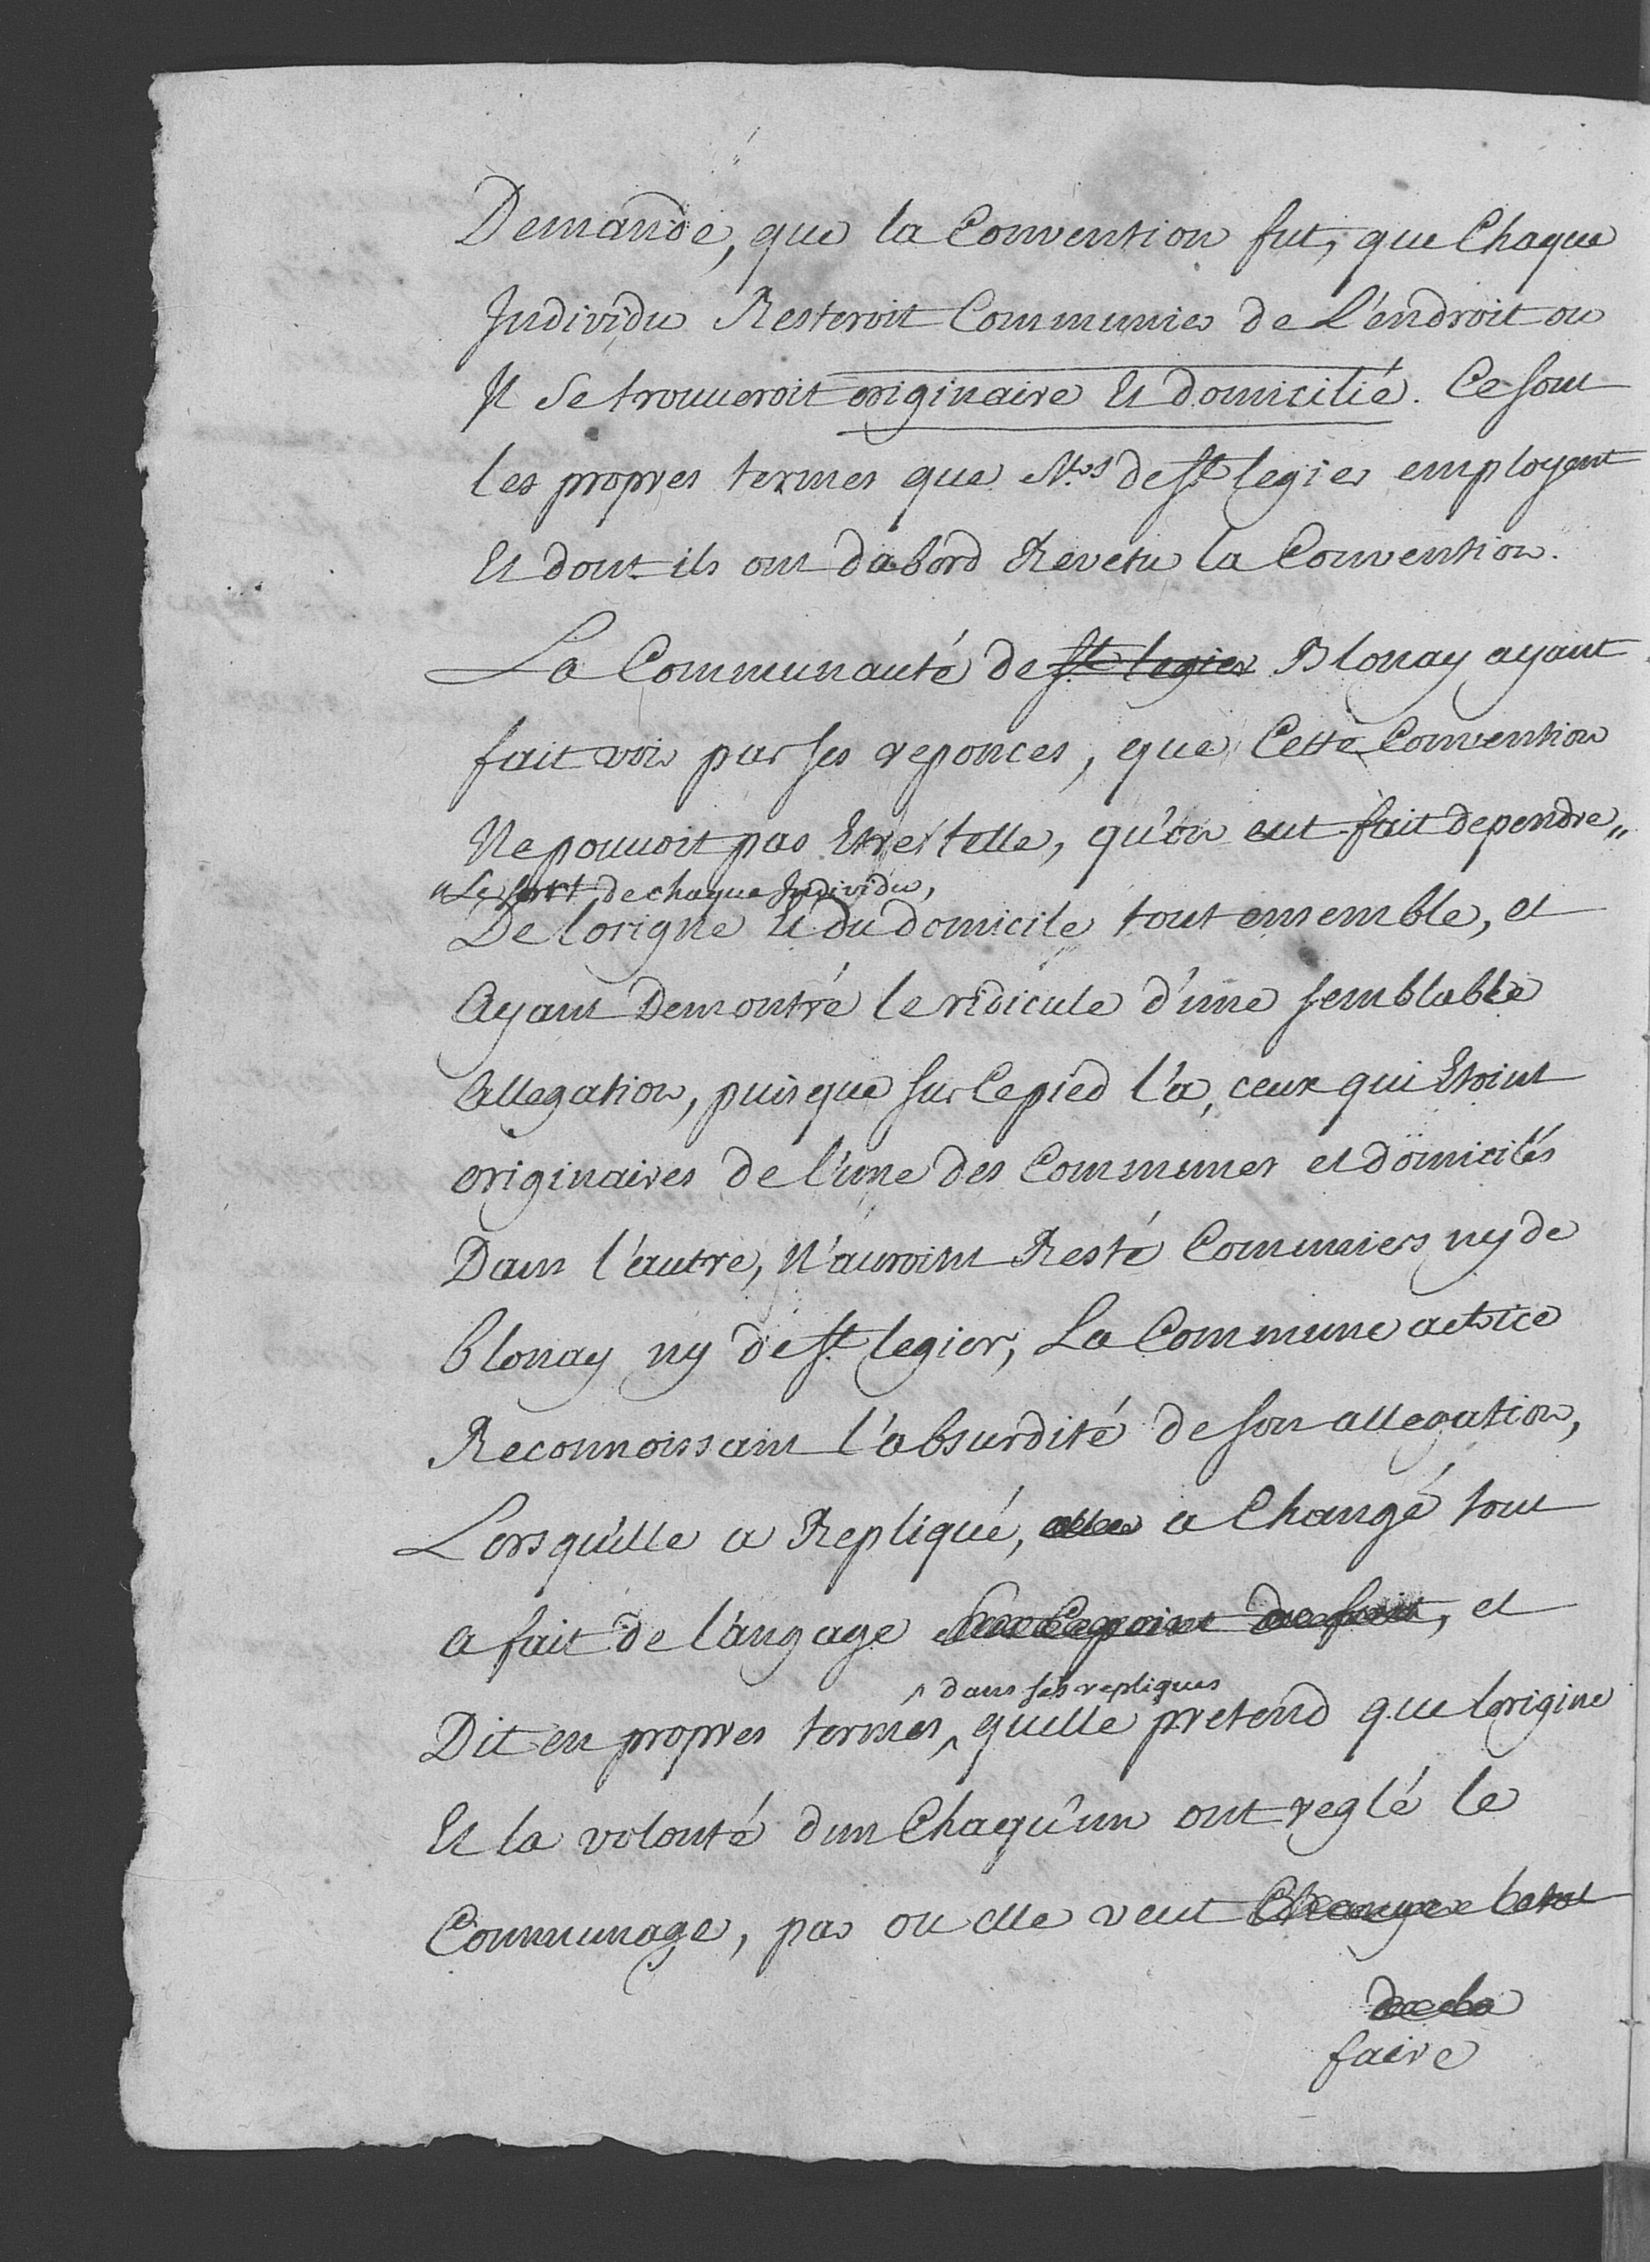 Demande, que la Convention fut, que Chaque
Individu Resteroit Communier de L'éndroit ou
Il Se trouveroit originaire Et domicilié. Ce sont
les propres termes que Mrs de St legier employent
Et dont ils ont dabord Revetu la Convention.
La Communauté de St legier Blonay ayant
fait voir par ses reponces, que Cette Convention
Ne pouvoit pas Etre telle, qu'on eut fait dependre „
„ Le sort de chaque Individu,
De lorigne Et du domicile tout ensemble, et
Ayant Demontré le ridicule d'une semblable
Allegation, puisque sur Ce pied l'a, ceux qui Etoint
originaires de l'une des Communes et domicilés
Dans l'autre, N'auroint Resté Communiers ny de
blonay ny de St legier, La Commune actrice
Reconnoissant l'absurdité de son allegation,
Lorsqu'elle a Repliqué, elle a Changé tout
a fait de l'angage sur Ce point de fait, et
^ dans ses repliques
Dit en propres termes ^ quelle pretend que lorigine
Et la volonté dun Chaqu'un ont reglé le
Communage, par ou elle veut Changer
faire